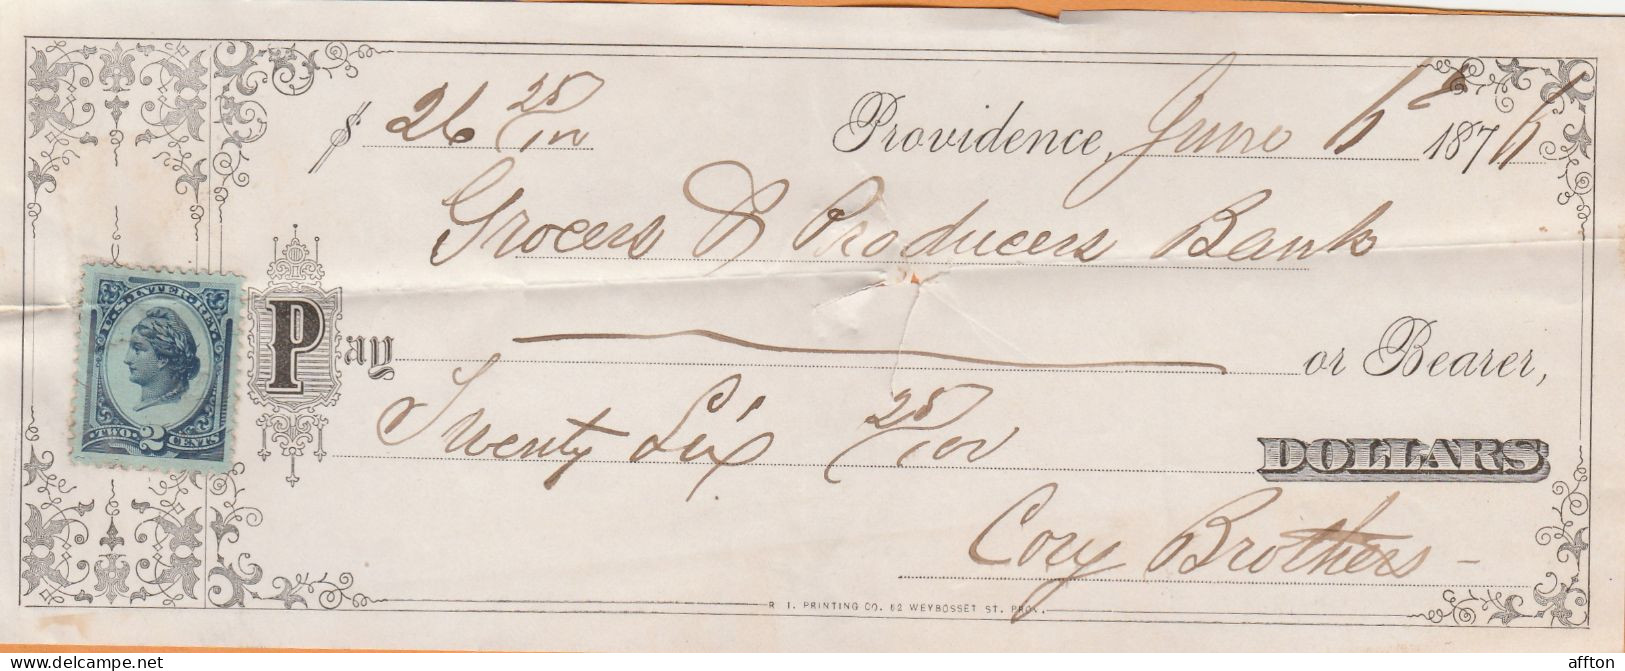 $ 26 25/100 Providence, June 6th 1876
Grocers & Producers Bank
Pay or Bearer,
Twenty Six 25/100 DOLLARS
Cory Brothers
R. I. PRINTING CO. 62 WEYBOSSET ST. PROV.
U.S. INTER. REV.
TWO 2 CENTS
affton